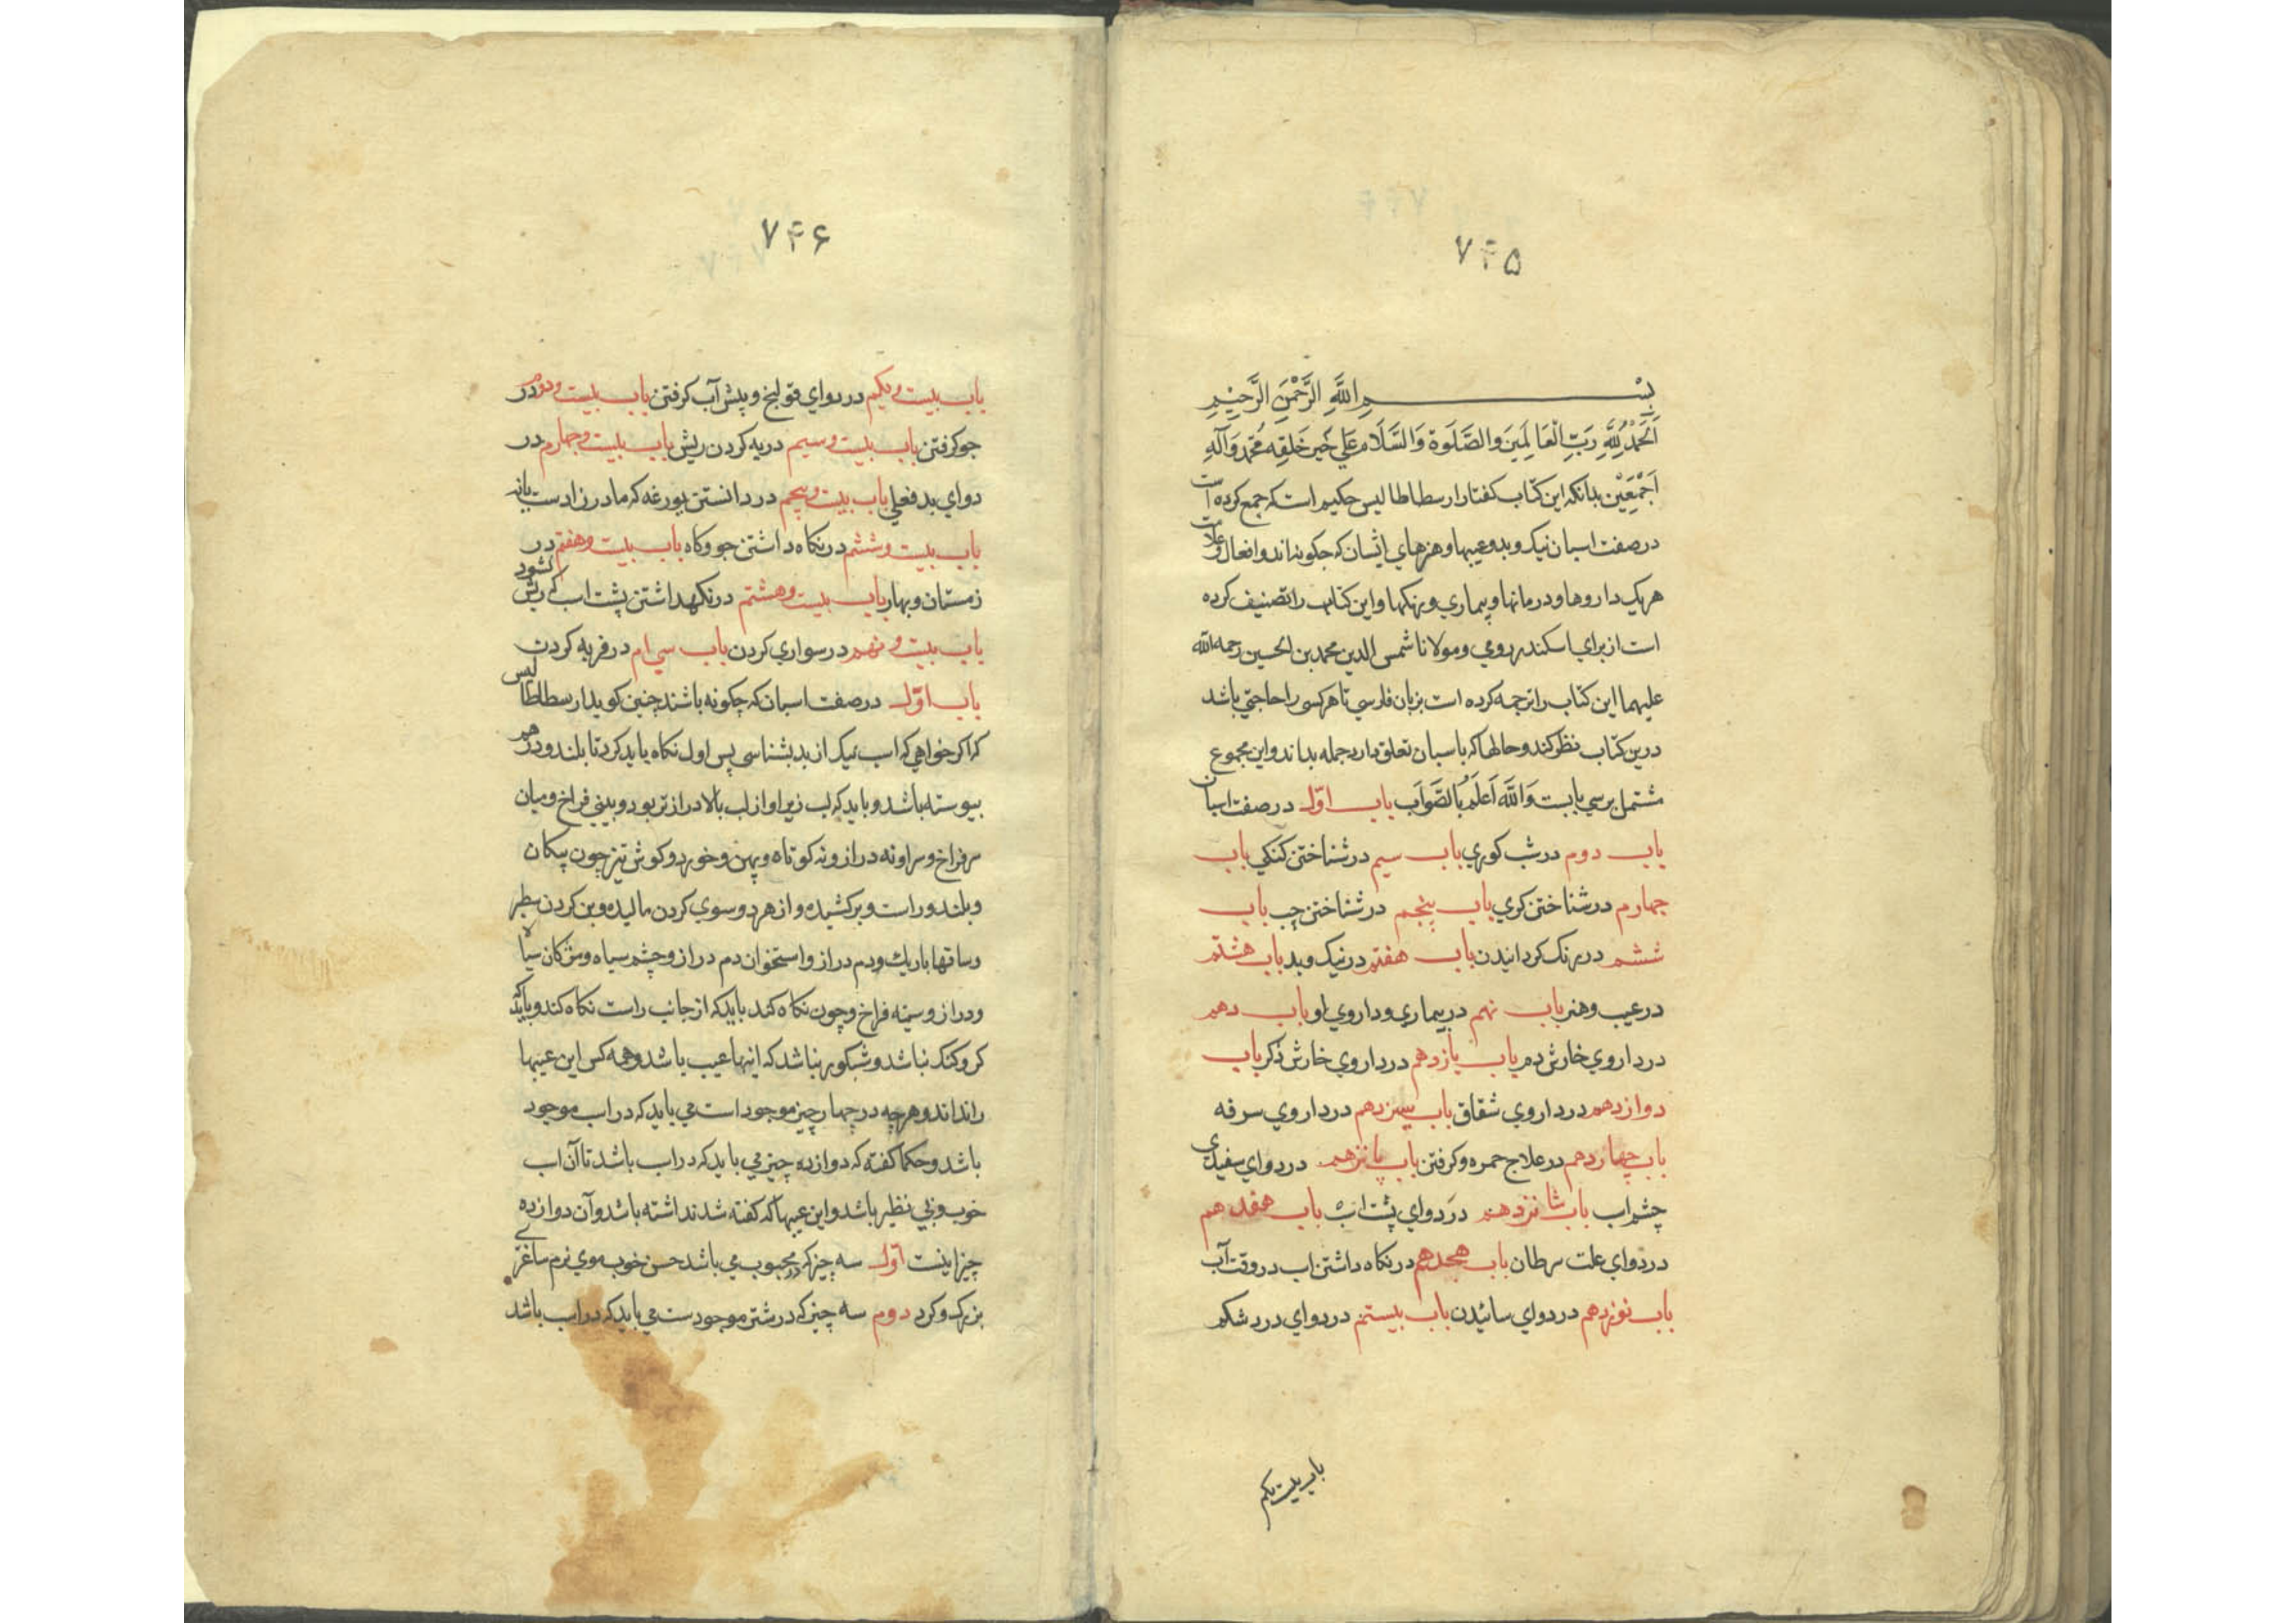 ۷۴۵
بسم الله الرَّحْمنِ الرَّحِيْمِ
اَلحَمْدُ لِلّٰهِ رَبِّ الْعَالَمِيَنَ وَالصَّلَوةَ وَالسَّلَام عَلي خَيرِ خَلقِه مُحَمّد وَآلَهِ
اَجْمَعَيْن بدانكه اين كتاب كفتار ارسطاطاليس حكيم است كه جمع كرده است
در صفت اسبان نيك و بد و عيبها و هنرهاي ايشان كه چكونه‌اند و افعال و علامت
هريك داروها و درمانها و بيماري و رنكها و اين كتاب را تصنيف كرده
است از براي اسكندر رومي و مولانا شمس الدين محمد بن الحسين رحمه الله
عليهما اين كتاب را ترجمه كرده است بزبان فارسي تا هر كسي را حاجتي باشد
درين كتاب نظر كند و حالها كه باسبان تعلق دارد جمله بداند و اين مجموع
مشتمل برسي بابست وَاللّه اَعلَمُ بالصَّوَاب باب اوّل در صفت اسبان
باب دوم در شب كوري باب سيم در شناختن كنكي باب
چهارم در شناختن كري باب پنجم در شناختن چپ باب
ششم در رنك كردانيدن باب هفتم در نيك و بد باب هشتم
در عيب و هنر باب نهم در بيماري و داروي او باب دهم
در داروي خارش دم باب يازدهم در داروي خارش ذكر باب
دوازدهم در داروي شقاق باب سيزدهم در داروي سرفه
باب چهاردهم در علاج حمره و كرفتن باب پانزدهم در دواي سفيدي
چشم اسب باب شانزدهم در دواي پشت اسب باب هفدهم
در دواي علت سرطان باب هجدهم در نكاه داشتن اسب در وقت آب
باب نوزدهم در دواي سائيدن باب بيستم در دواي درد شكم
باب بيست يكم
۷۴۶
باب بيست و يكم در دواي قولنج و پيش آب كرفتن باب بيست و دوم در
جو كرفتن باب بيست و سيم در به كردن ريش باب بيست و چهارم در
دواي بد فعلي باب بيست و پنجم در دانستن يورغه كه مادر زادست يا نه
باب بيست و ششم در نكاه داشتن جو و كاه باب بيست و هفتم در
زمستان و بهار باب بيست و هشتم در نكهداشتن پشت اسب كه ريش نشود
باب بيست و نهم در سواري كردن باب سي ام در فربه كردن
باب اوّل در صفت اسبان كه چكونه باشند چنين كويد ارسطاطاليس
كه اكر خواهي كه اسب نيك از بد بشناسي پس اول نكاه بايد كرد تا بلند و درهم
پيوسته باشد و بايد كه لب زير او از لب بالا درازتر بود و بيني فراخ و ميان
سر فراخ و سر او نه دراز و نه كوتاه و پهن و خورد و كوش تيز چون پيكان
و بلند و راست و بركشيده و از هر دو سوي كردن ماليده و بن كردن سطبر
و ساقها باريك و دم دراز و استخوان دم دراز و چشم سياه و مژكان سياه
و دراز و سينه فراخ و چون نكاه كند بايد كه از جانب راست نكاه كند و بايد كه
كر و كنك نباشد و شبكور نباشد كه اينها عيب باشد و همه كس اين عيبها
را نداند و هر چه در چهار چيز موجود است مي بايد كه در اسب موجود
باشد و حكما كفته كه دوازده چيز مي بايد كه در اسب باشد تا آن اسب
خوب و بي نظير باشد و اين عيبها كه كفته شد نداشته باشد و آن دوازده
چيز اينست اوّل سه چيز كه در محبوب مي باشد حسن خوب موي نرم ساغري
بزرك و كرد دوم سه چيز كه در شتر موجود ست مي بايد كه در اسب باشد